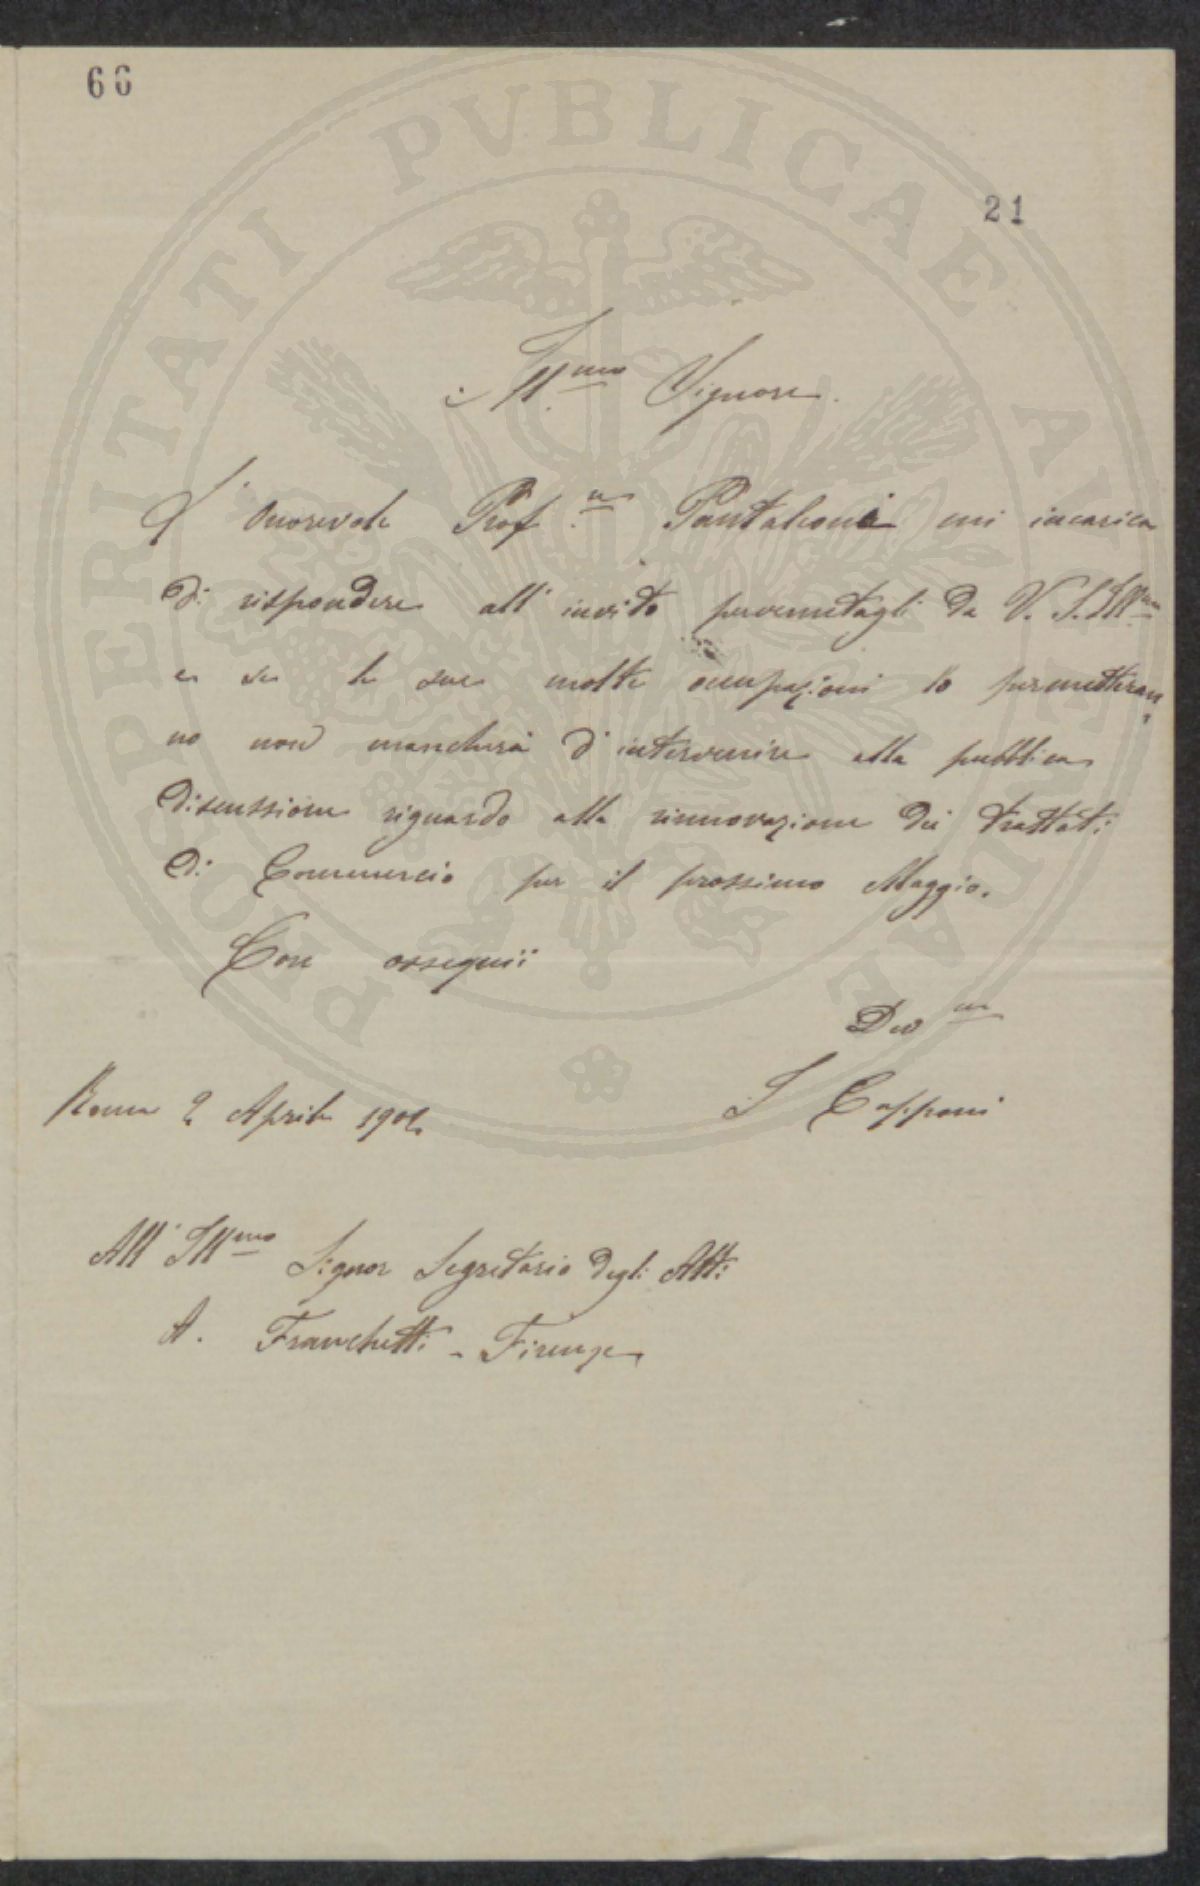 66
21
Ill.mo Signore.
L'Onorevole Prof.re Pantaleoni mi incarica
di rispondere all'invito pervenutagli da V. S. Ill.ma
e se le sue molte occupazioni lo permetteran
no non mancherà d'intervenire alla pubblica
discussione riguardo alla rinnovazione dei trattati
di Commercio per il prossimo Maggio.
Con ossequii
Dev.mo
Capponi
Roma 2 Aprile 1902
All'Ill.mo Signor Segretario degli Atti
A. Franchetti - Firenze
PROSPERITATI PVBLICAE AVGENDAE